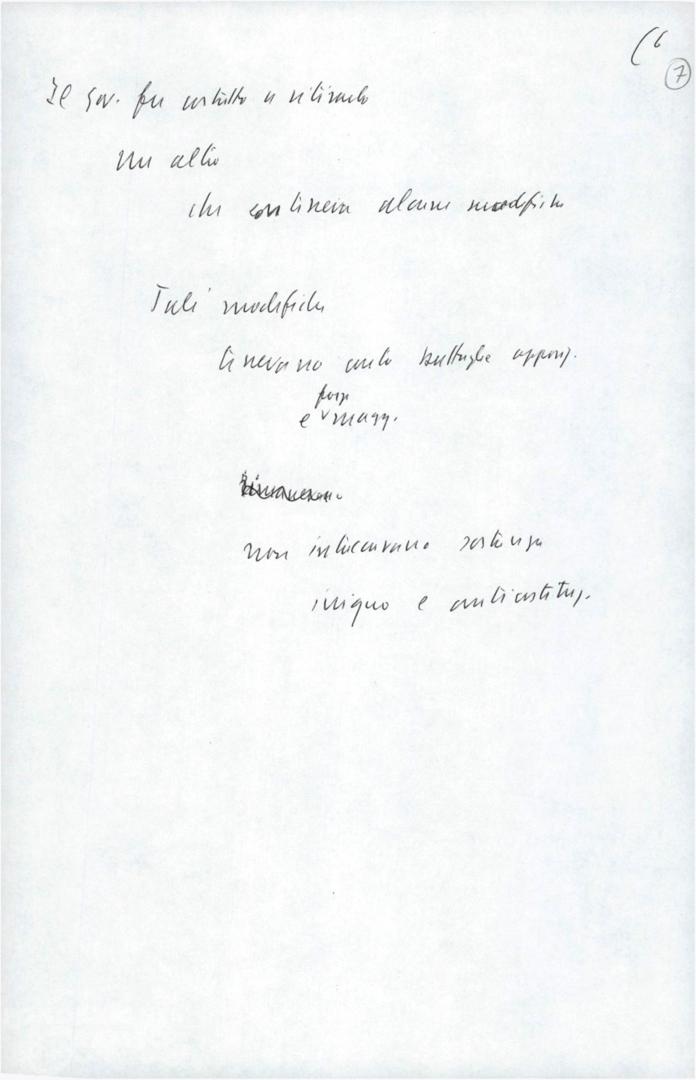 (6
7
Il gov. fu costretto a ritirarlo
un altro
che conteneva alcune modifiche
Tali modifiche
tenevano conto battaglia opposiz.
forze
e magg.
non intaccavano sostanza
iniquo e anticostituz.